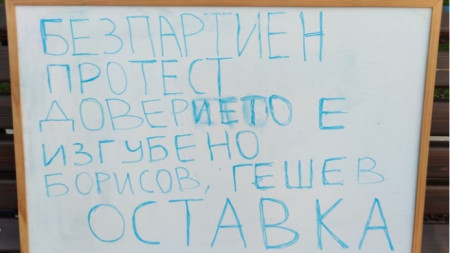 БЕЗПАРТИЕН
ПРОТЕСТ
ДОВЕРИЕТО Е
ИЗГУБЕНО
БОРИСОВ, ГЕШЕВ
ОСТАВКА